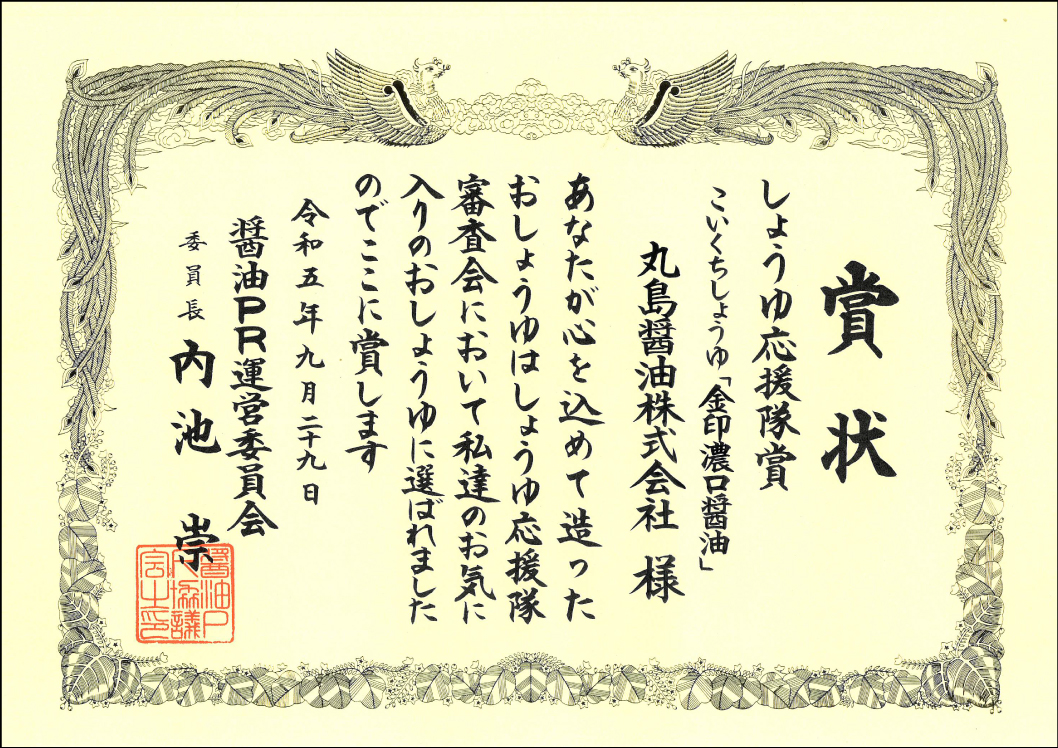 賞状
しょうゆ応援隊賞
こいくちしょうゆ「金印濃口醤油」
丸島醤油株式会社 様
あなたが心を込めて造った
おしょうゆはしょうゆ応援隊
審査会において私達のお気に
入りのおしょうゆに選ばれました
のでここに賞します
令和五年九月二十九日
醤油PR運営委員会
委員長 内池 崇